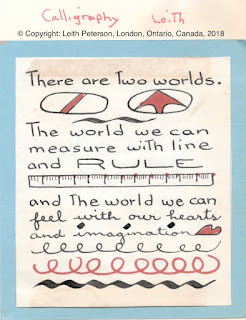 Calligraphy Leith
© Copyright: Leith Peterson, London, Ontario, Canada, 2018
There are Two worlds.
The world we can
measure with line
and RULE
and The world we can
feel with our hearts
and imagination